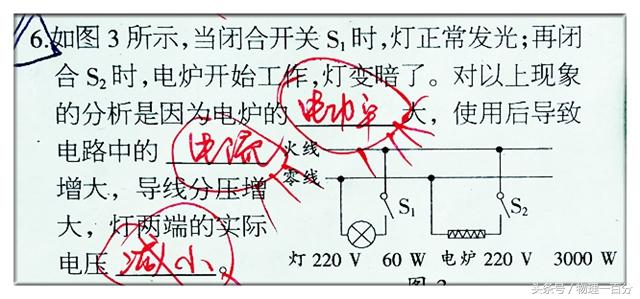 6.如图3所示,当闭合开关S₁时,灯正常发光;再闭
合S₂时,电炉开始工作,灯变暗了。对以上现象
的分析是因为电炉的 电功率 大，使用后导致
电路中的 电流 火线
增大，导线分压增 零线
大，灯两端的实际 S₁ S₂
电压 减小 。 灯 220 V 60 W 电炉 220 V 3000 W
头条号 / 物理一百分